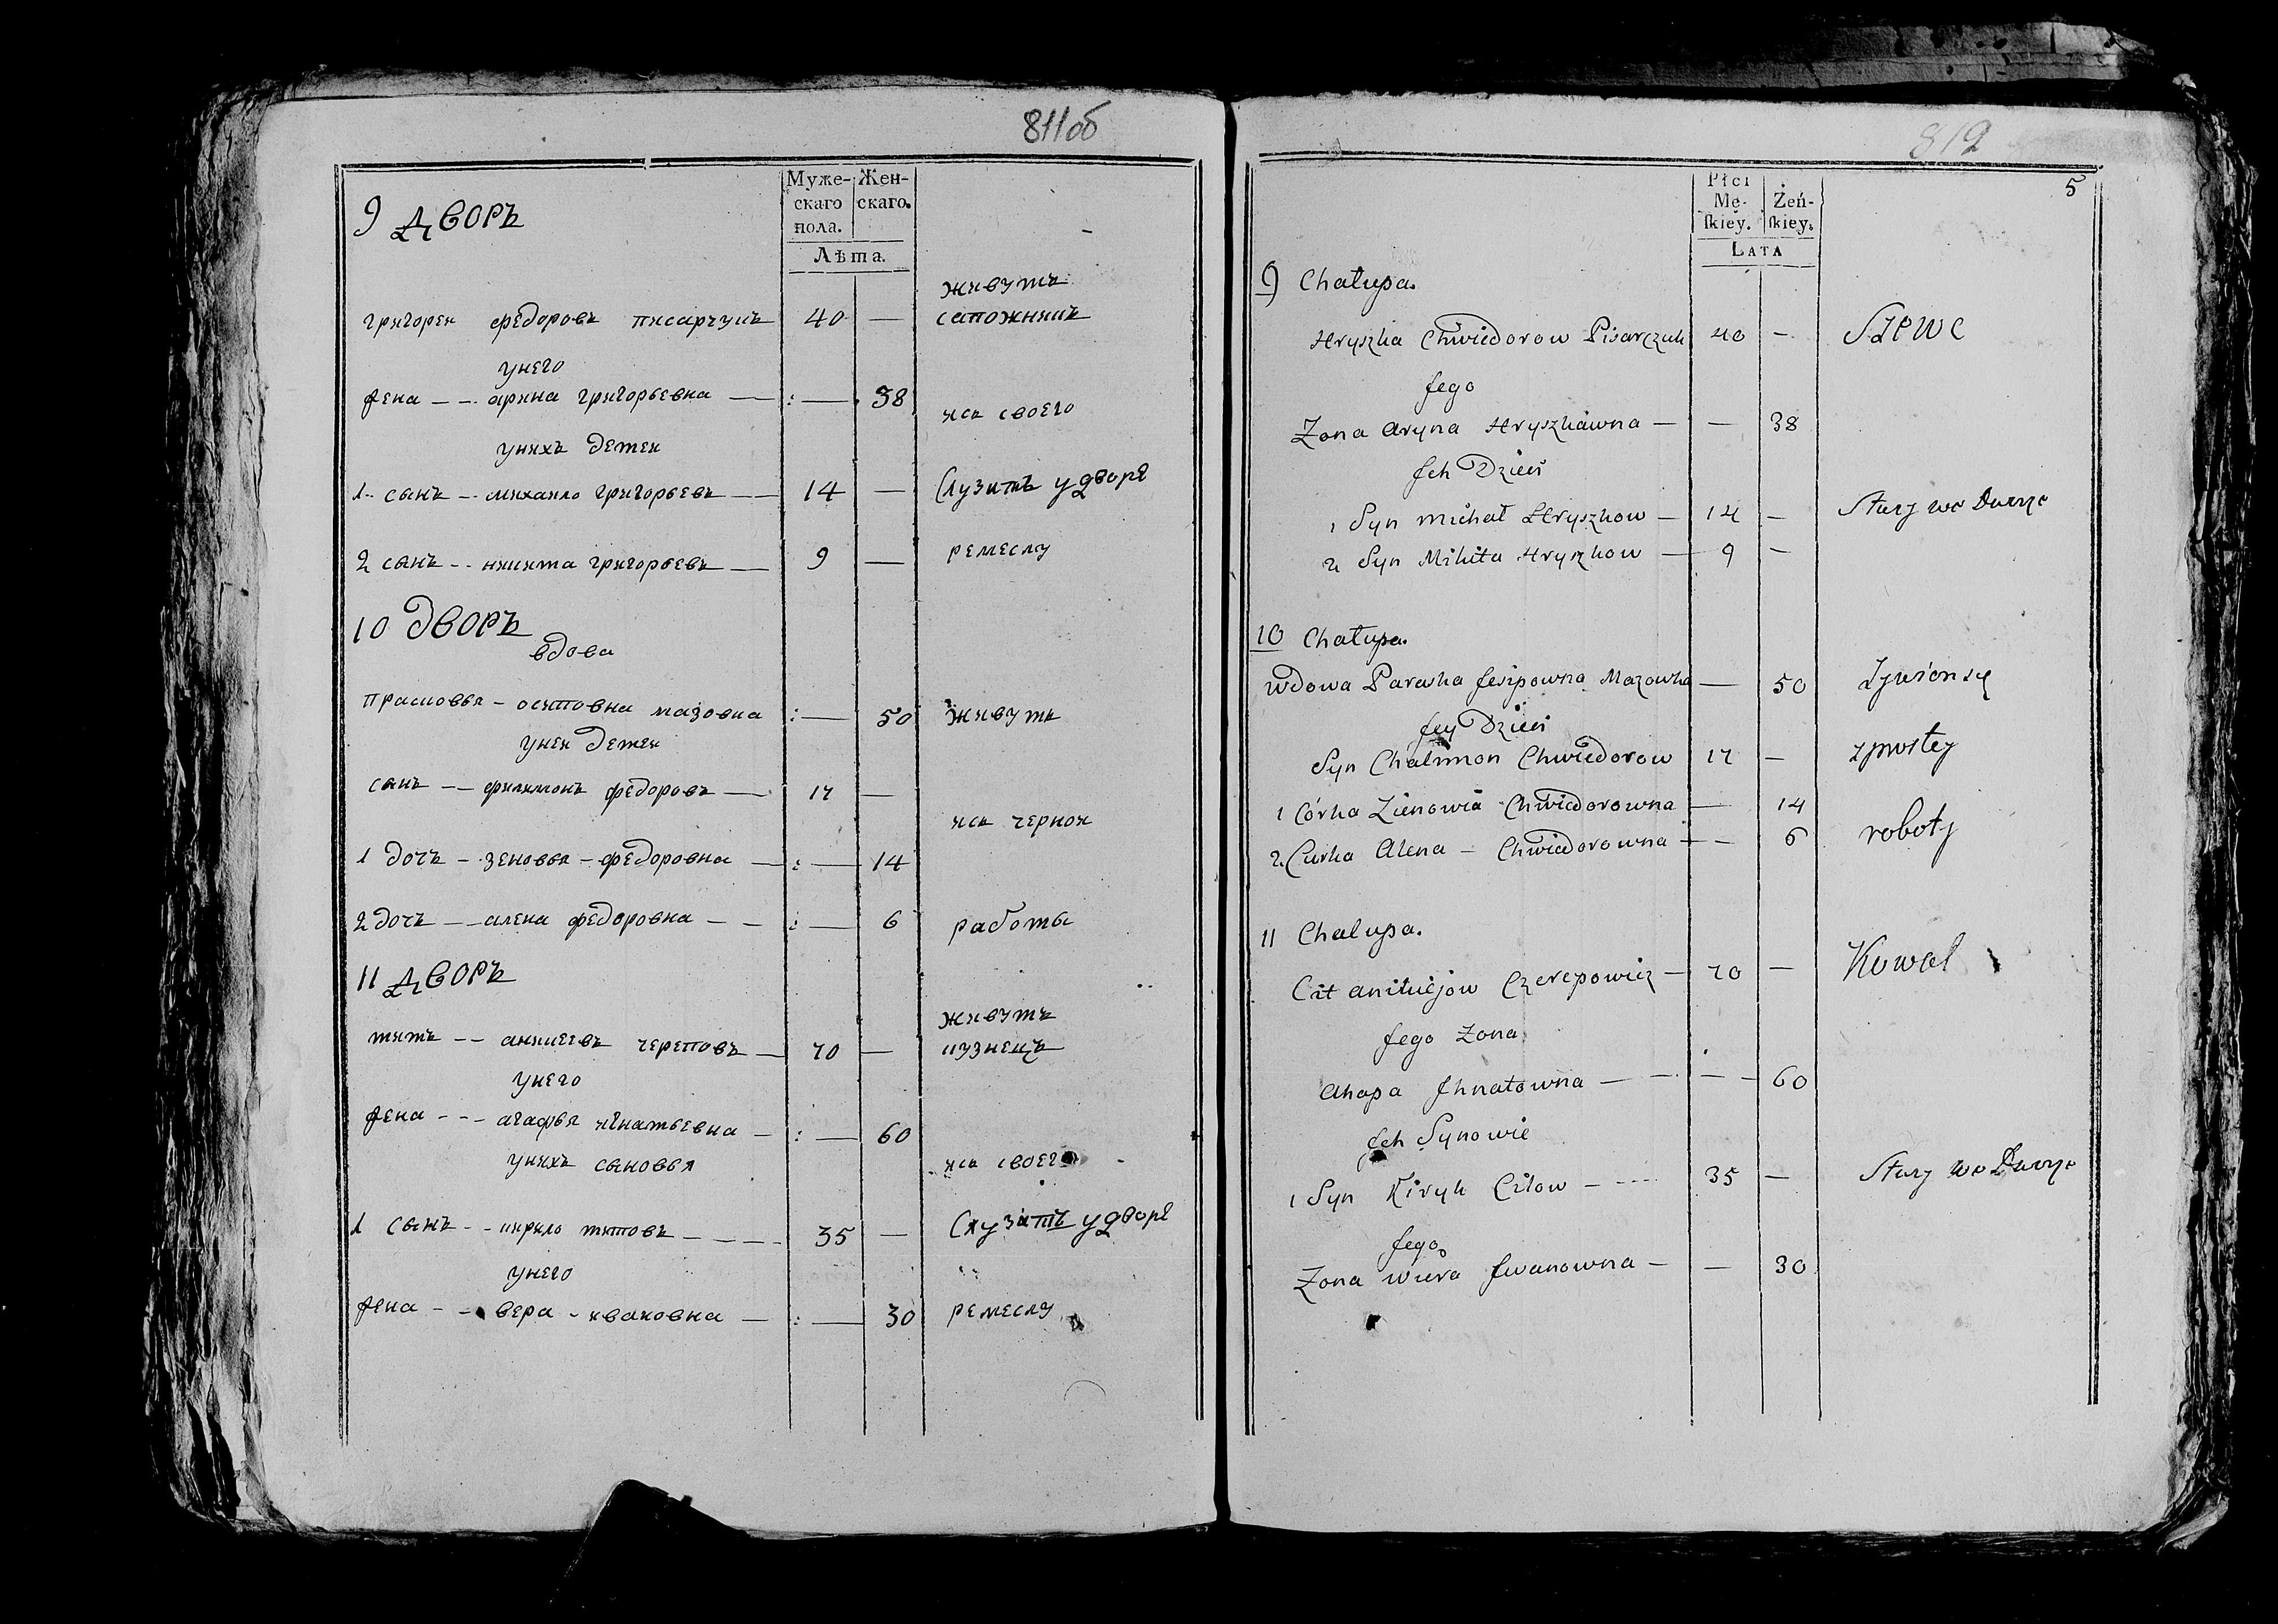 811об
Муже- Жен-
скаго скаго.
пола.
Лѣта.
9 дворъ
живутъ
григореи федоровъ писарчукъ 40 — сапожникъ
унего
жена — арина григорьевна — : — 38
иси своего
унихъ детеи
1 сынъ — михаило григорьевъ — 14 — Слузитъ удворе
2 сынъ — никита григорьевъ — 9 — ремеслу
10 дворъ
вдова
прасковья — осиповна мазовка : — 50 живутъ
унеи детеи
сынъ — филимонъ федоровъ — 17 —
иси чернои
1 дочь — зеновья — федоровна — : — 14
2 дочь — алена федоровна — : — 6 работы
11 дворъ
живутъ
титъ — аникеевъ череповъ — 70 — кузнецъ
унего
жена — агафья игнатьевна — : — 60
унихъ сыновья иси своего
1 сынъ — кирило титовъ — 35 — Слузатъ удворе
унего
жена — вера — ивановна — : — 30 ремеслу
812
5
Płci
Mę- Żeń-
skiey. skiey.
LATA
9 Chałupa.
Hryszka Chwiedorow Pisarczuk 40 — Szewc
Jego
Zona Aryna Hryszkawna — — 38
Jch Dzieci
1 Syn Michał Hryszkow — 14 — Służy we Dworze
2 Syn Mikita Hryszkow — 9 —
10 Chałupa.
Wdowa Paraska Jesipowna Mazowka — 50 Zywionsię
Jey Dzieci
Syn Chalimon Chwiedorow 17 — zprostey
1 Córka Zienowia Chwiedorowna — 14
roboty
2 Curka Alena — Chwiedorowna — 6
11 Chalupa.
Cit Anikiejow Czerepowicz — 70 — Kowal
Jego Zona
Ahapa Jhnatowna — — 60
Jch Synowie
1 Syn Kiryk Citow — 35 — Służy we Dworze
Jego
Zona Wiera Jwanowna — — 30